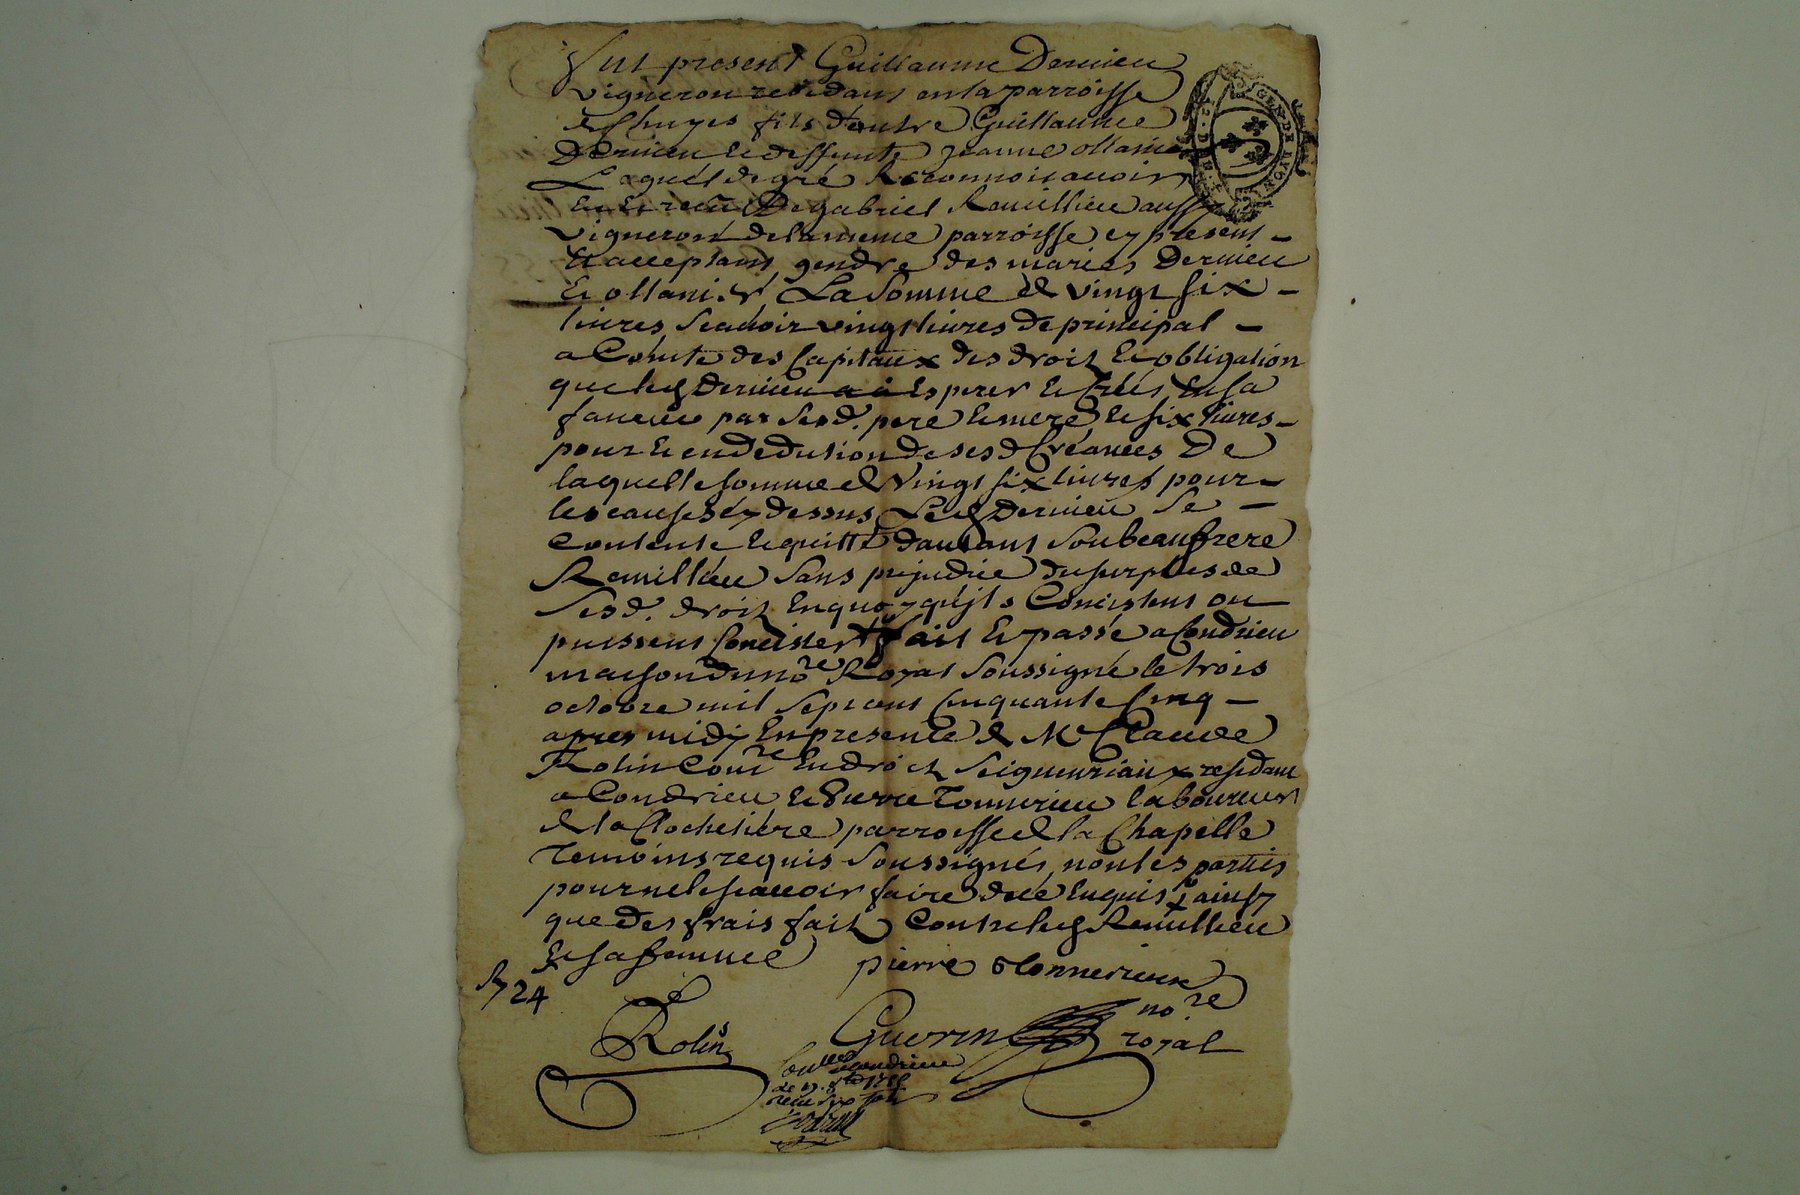 Fut present Guillaume Dernieu
vigneron residant en la parroisse
fils d'autre Guillaume
Dernieu et deffunte jeanne ollanier
Lequel de gré Reconnoit avoir
Eu et recu De gabriel Remillieu aussy
vigneron de la meme parroisse cy present -
Et acceptant gendre des maries Dernieu
Et ollanier, La somme de vingt six -
livres scavoir vingt livres de principal -
a Comte des Capitaux des droit et obligation
que led Dernieu a a Esperer et Crées En sa
faveur par sesd. pere et mere et six livres -
pour et en dedution de ses d Créances De
laquelle somme de vingt six livres pour -
les causes cy dessus Led Dernieu se -
Contente et quitte d'autant son beaufrere
Remillieu sans prejudice du surplus de
sesd. droit En quoy qu'jls Concistent ou
puissent Concister fait Et passé a Condrieu
maison du no.re Royal soussigné le trois
octobre mil sept cent Cinquante Cinq -
apres midy En presence de Me Claude
Rolin Comre En droit seigneuriaux residant
a Condrieu et Pierre Tonnerieu laboureur
de la Clochetiere parroisse de la Chapelle
Temoins requis soussignés, non les partis
pour ne le scavoir faire de ce Enquis ainsy
que des frais fait Contre led Remillieu
Et sa femme
pierre tonnerieux
24
Rolin
Guerin no.re
royal
Con.lé a Condrieu
recu six sols